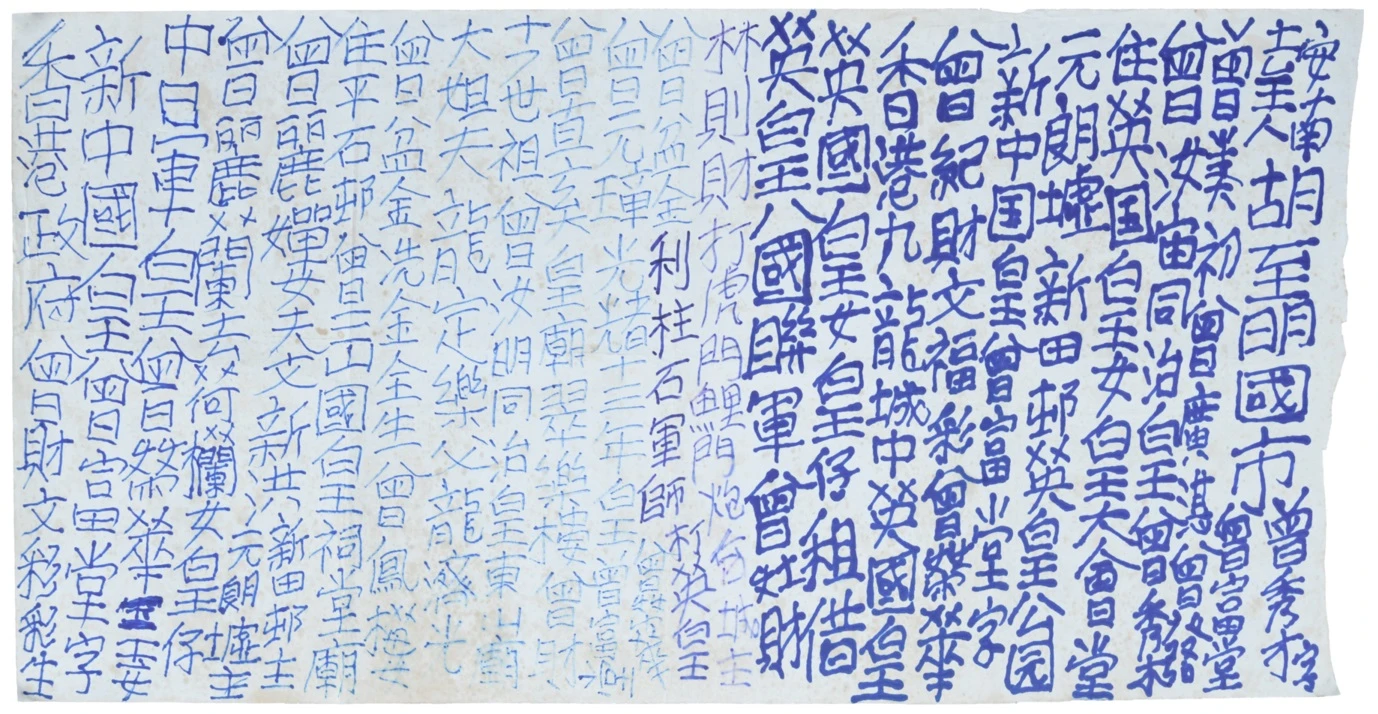 安南
皇人胡至明國市曾秀才字
曾美初曾廣淇曾發曾富堂
曾汝宙同治皇曾秀才
住英国皇女皇大會堂
元朗墟新田邨英皇公园
新中国皇曾富堂字
曾紀財文福彩曾榮華
香港九龍城中英國皇
英國皇女皇仔租借
英皇八國聯軍曾灶財
林則財打虎門鯉門炮台城主
利柱石軍師打英皇
曾盆金
曾元琿光緒十三年皇曾富
曾直矣皇廟翠樂樓曾財
十世祖曾汝明同治皇東山廟
大姐夫龍定樂父龍濟七
曾盆金洗金全生曾鳳
住平石邨曾三山國皇祠堂廟
曾麗嬋女夫文新共新田邨主
曾麗蘭去英何欄女皇仔元朗墟主
中日軍皇曾榮華王女
新中國皇曾富田堂字
香港政府曾財文彩彩生